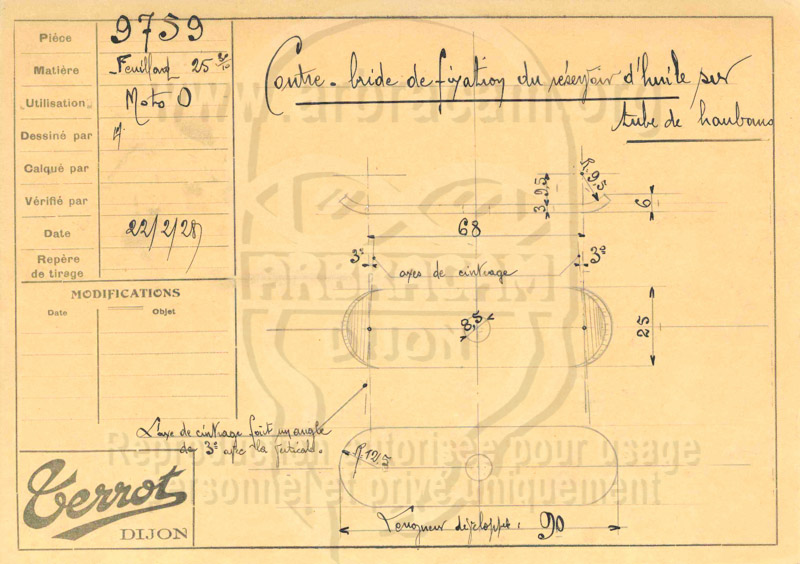 Pièce 9759
Matière Feuillard 25 3/10
"Utilisation" Moto O
Dessiné par
Calqué par
Vérifié par
Date 22/2/28
Repère
de tirage
MODIFICATIONS
Date Objet
Terrot
DIJON
Contre-bride de fixation du réservoir d'huile sur
tube de haubans
R.9,5
3
9,5
6
68
3°
3°
axes de cintrage
8,5
25
L'axe de cintrage fait un angle
de 3° avec la verticale.
R.12,5
Longueur développée: 90
ARBRACAM
DIJON
Reproduction autorisée pour usage
personnel et privé uniquement